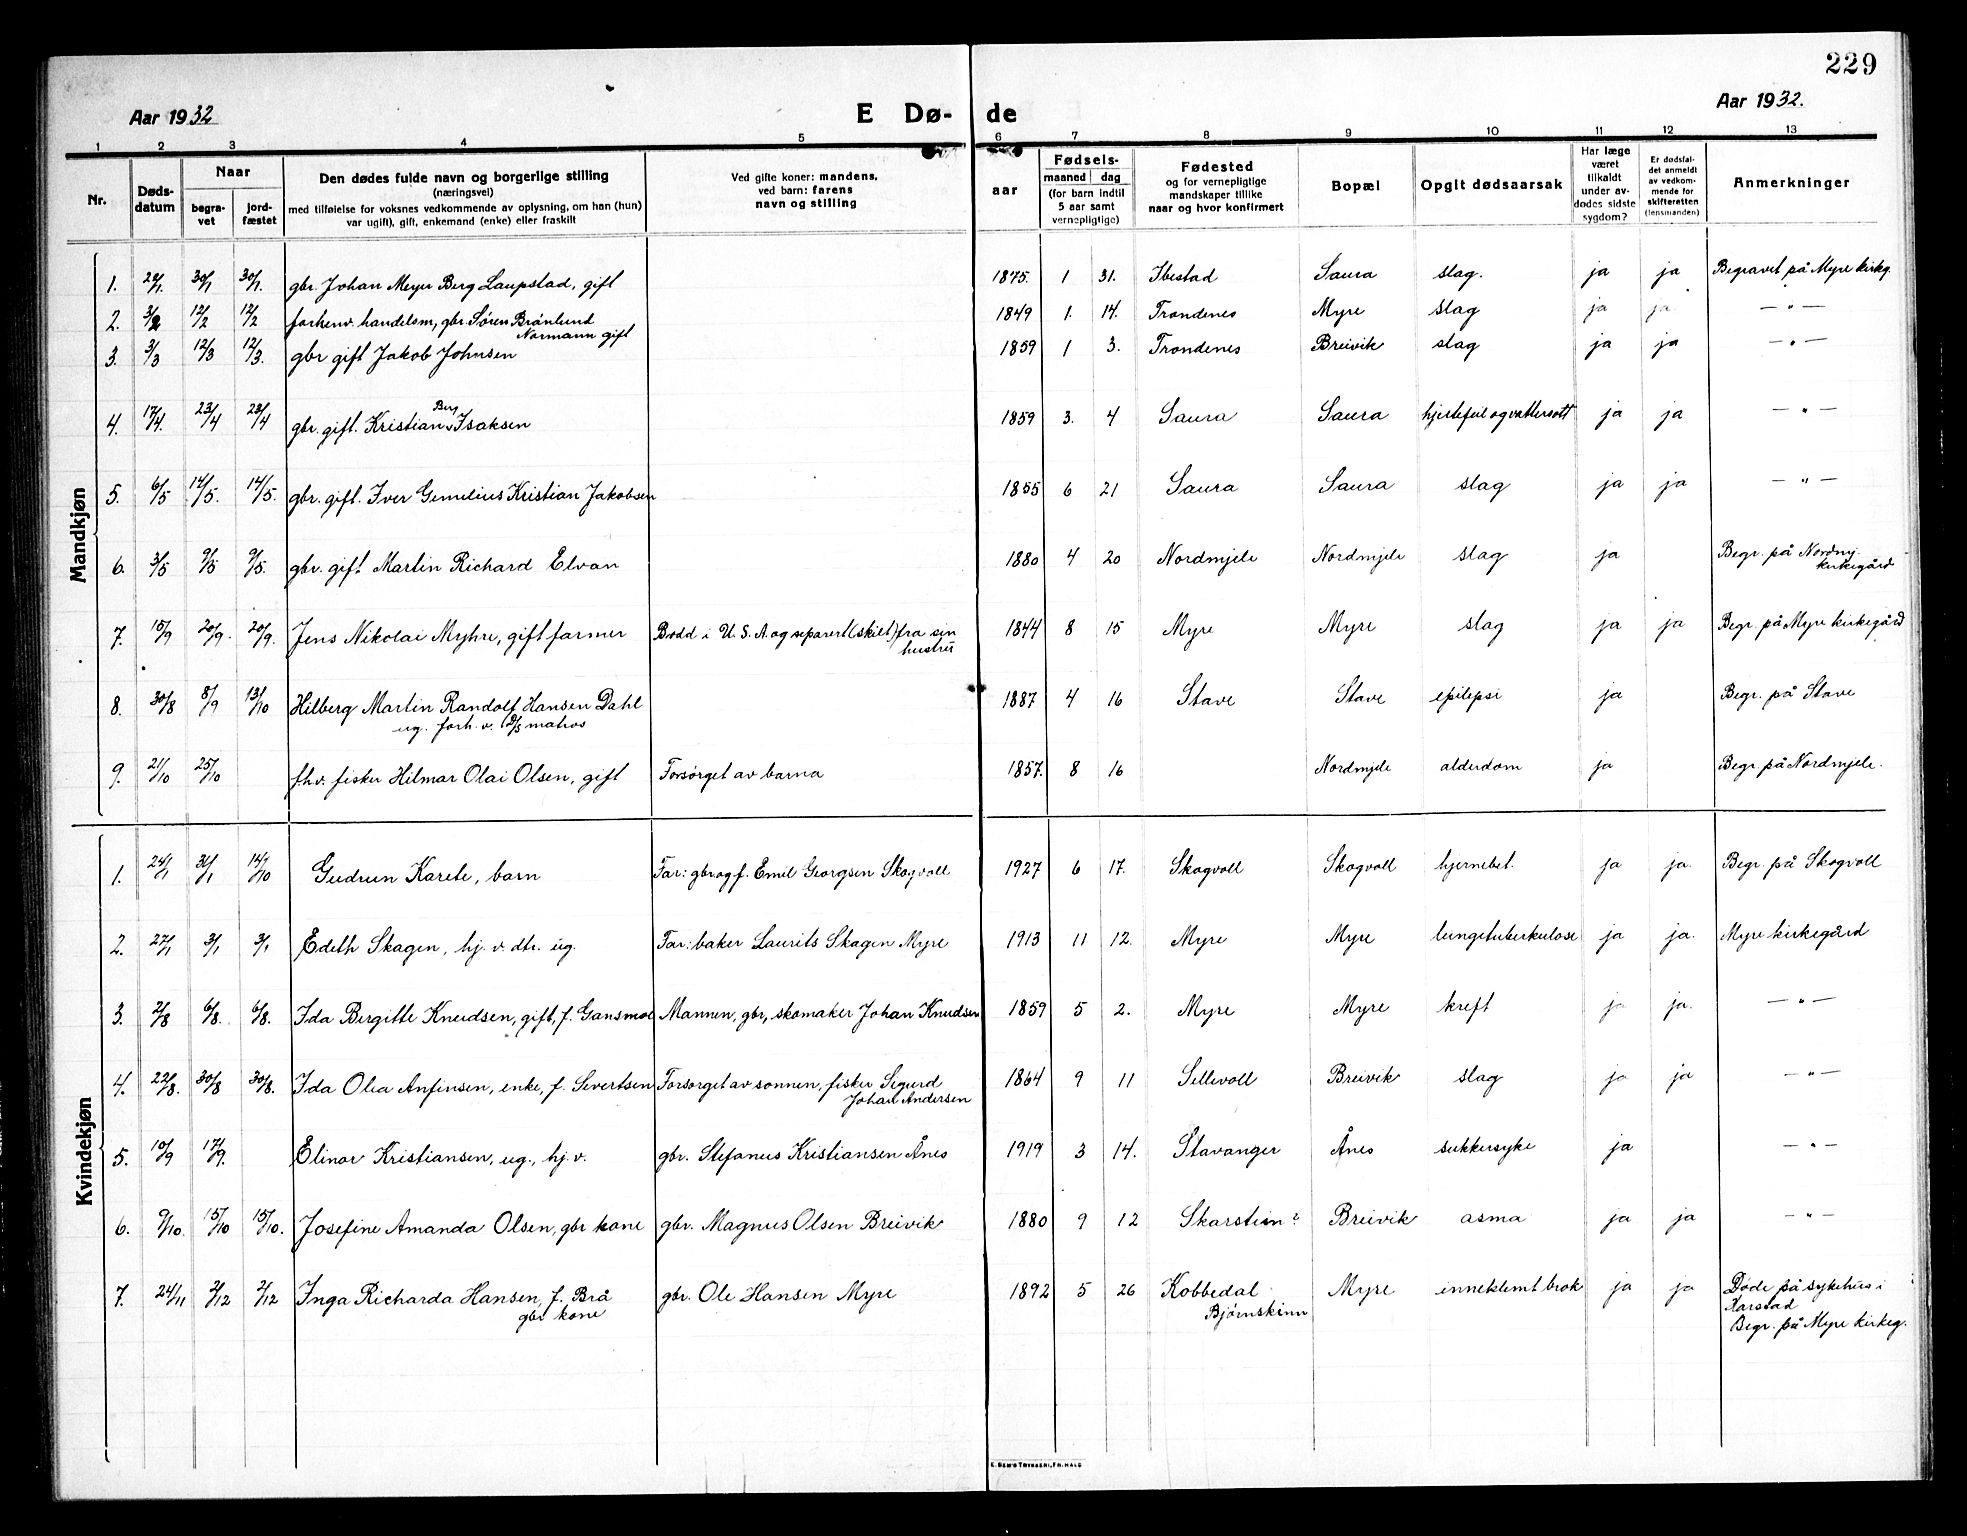 229
Aar 1932
E Dø-
de
Aar 1932.
1 2 3 4 5 6 7 8 9 10 11 12 13
Nr.
Døds-
datum
Naar
begra-
vet
jord-
fæstet
Den dødes fulde navn og borgerlige stilling
(næringsvei)
med tilføielse for voksnes vedkommende av oplysning, om han (hun)
var ugift), gift, enkemand (enke) eller fraskilt
Ved gifte koner: mandens,
ved barn: farens
navn og stilling
aar
Fødsels-
maaned dag
(for barn indtil
5 aar samt
vernepligtige)
Fødested
og for vernepligtige
mandskaper tillike
naar og hvor konfirmert
Bopæl
Opgit dødsaarsak
Har læge
været
tilkaldt
under av-
dødes sidste
sygdom?
Er dødsfal-
det anmeldt
av vedkom-
mende for
skifteretten
(lensmanden)
Anmerkninger
Mandkjøn
1. 30/1 30/1. gbr. Johan Meyer Berg Laupstad, gift 1875. 1 31. Ibestad Saura slag. ja ja Begravet på Myre kirkg.
2. 3/2 12/2 12/2 forhenv. handelsm, gbr. Søren Brønlund 1849 1. 14. Trondenes Myre slag ja ja. — " —
Normann gift
3. 3/3 12/3 12/3. gbr gift Jakob Johnsen 1859 1 3. Trondenes Breivik slag ja ja — " —
4. 17/4. 23/4 23/4 gbr. gift. Kristian Berg Isaksen 1859 3. 4 Saura Saura hjertefeil og vattersott ja ja — " —
5. 6/5 14/5. 14/5. gbr. gift. Iver Gemelius Kristian Jakobsen 1855 6 21 Saura Saura slag ja ja — " —
6. 3/5 9/5 9/5. gbr. gift. Martin Richard Elvan 1880 4 20 Nordmjele Nordmjele slag ja Begr. på Nordmj.
kirkegård
7. 15/9 20/9. 20/9. Jens Nikolai Myhre, gift farmer Bodd i U.S.A. og separert (skilt) fra sin 1844 8 15 Myre Myre slag ja ja Begr. på Myre kirkegård
hustru
8. 30/8 8/9 13/10 Hilberg Martin Randolf Hansen Dahl 1887 4 16 Stave Stave epilepsi ja Begr. på Stave
ug. forh. v. D/S matros
9. 21/10 25/10 fhv. fisker Hilmar Olai Olsen, gift Forsørget av barna 1857. 8 16 Nordmjele alderdom ja Begr på Nordmjele.
Kvindekjøn
1. 24/1 31/1 14/10 Gudrun Karete, barn Far: gbr og f. Emil Georgsen Skogvoll 1927 6 17. Skogvoll Skogvoll hjernebet. ja ja. Begr. på Skogvoll
2. 27/1 3/1 3/1 Edith Skagen, hj. v. dtr. ug. Far: baker Laurits Skagen Myre 1913 11 12. Myre Myre lungetuberkulose ja ja. Myre kirkegård
3. 2/8 6/8. 6/8. Ida Bergitte Knudsen, gift, f. Gansmoe Mannen, gbr, skomaker Johan Knudsen 1859 5 2. Myre Myre kreft ja ja. — " —
4. 22/8. 30/8 30/8. Ida Olea Anfinsen, enke, f. Severtsen Forsørget av sønnen, fisker Sigurd 1864 9 11 Sellevoll Breivik slag ja ja — " —
Johan Andersen
5. 10/9 17/9. Elinor Kristiansen, ug., hj. v. gbr. Stefanus Kristiansen Ånes 1919 3 14. Stavanger Ånes sukkersyke ja — " —
6. 9/10. 15/10 15/10. Josefine Amanda Olsen, gbr kone gbr. Magnus Olsen Breivik 1880 9 12 Skarstein? Breivik asma ja ja — " —
7. 24/11 2/12 2/12 Inga Richarda Hansen, f. Brå gbr. Ole Hansen Myre 1892 5 26 Kobbedal Myre inneklemt brok ja ja Døde på sykehus i
gbr kone Bjørnskinn Harstad
Begr. på Myre kirkeg.
E. SEM'S TRYKKERI, FR.HALD